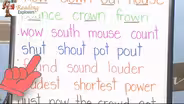 Reading
Explorers
now down out house
ounce crown frown
wow south mouse count
shut shout pot pout
found sound louder
loudest shortest power
just now the crowd got